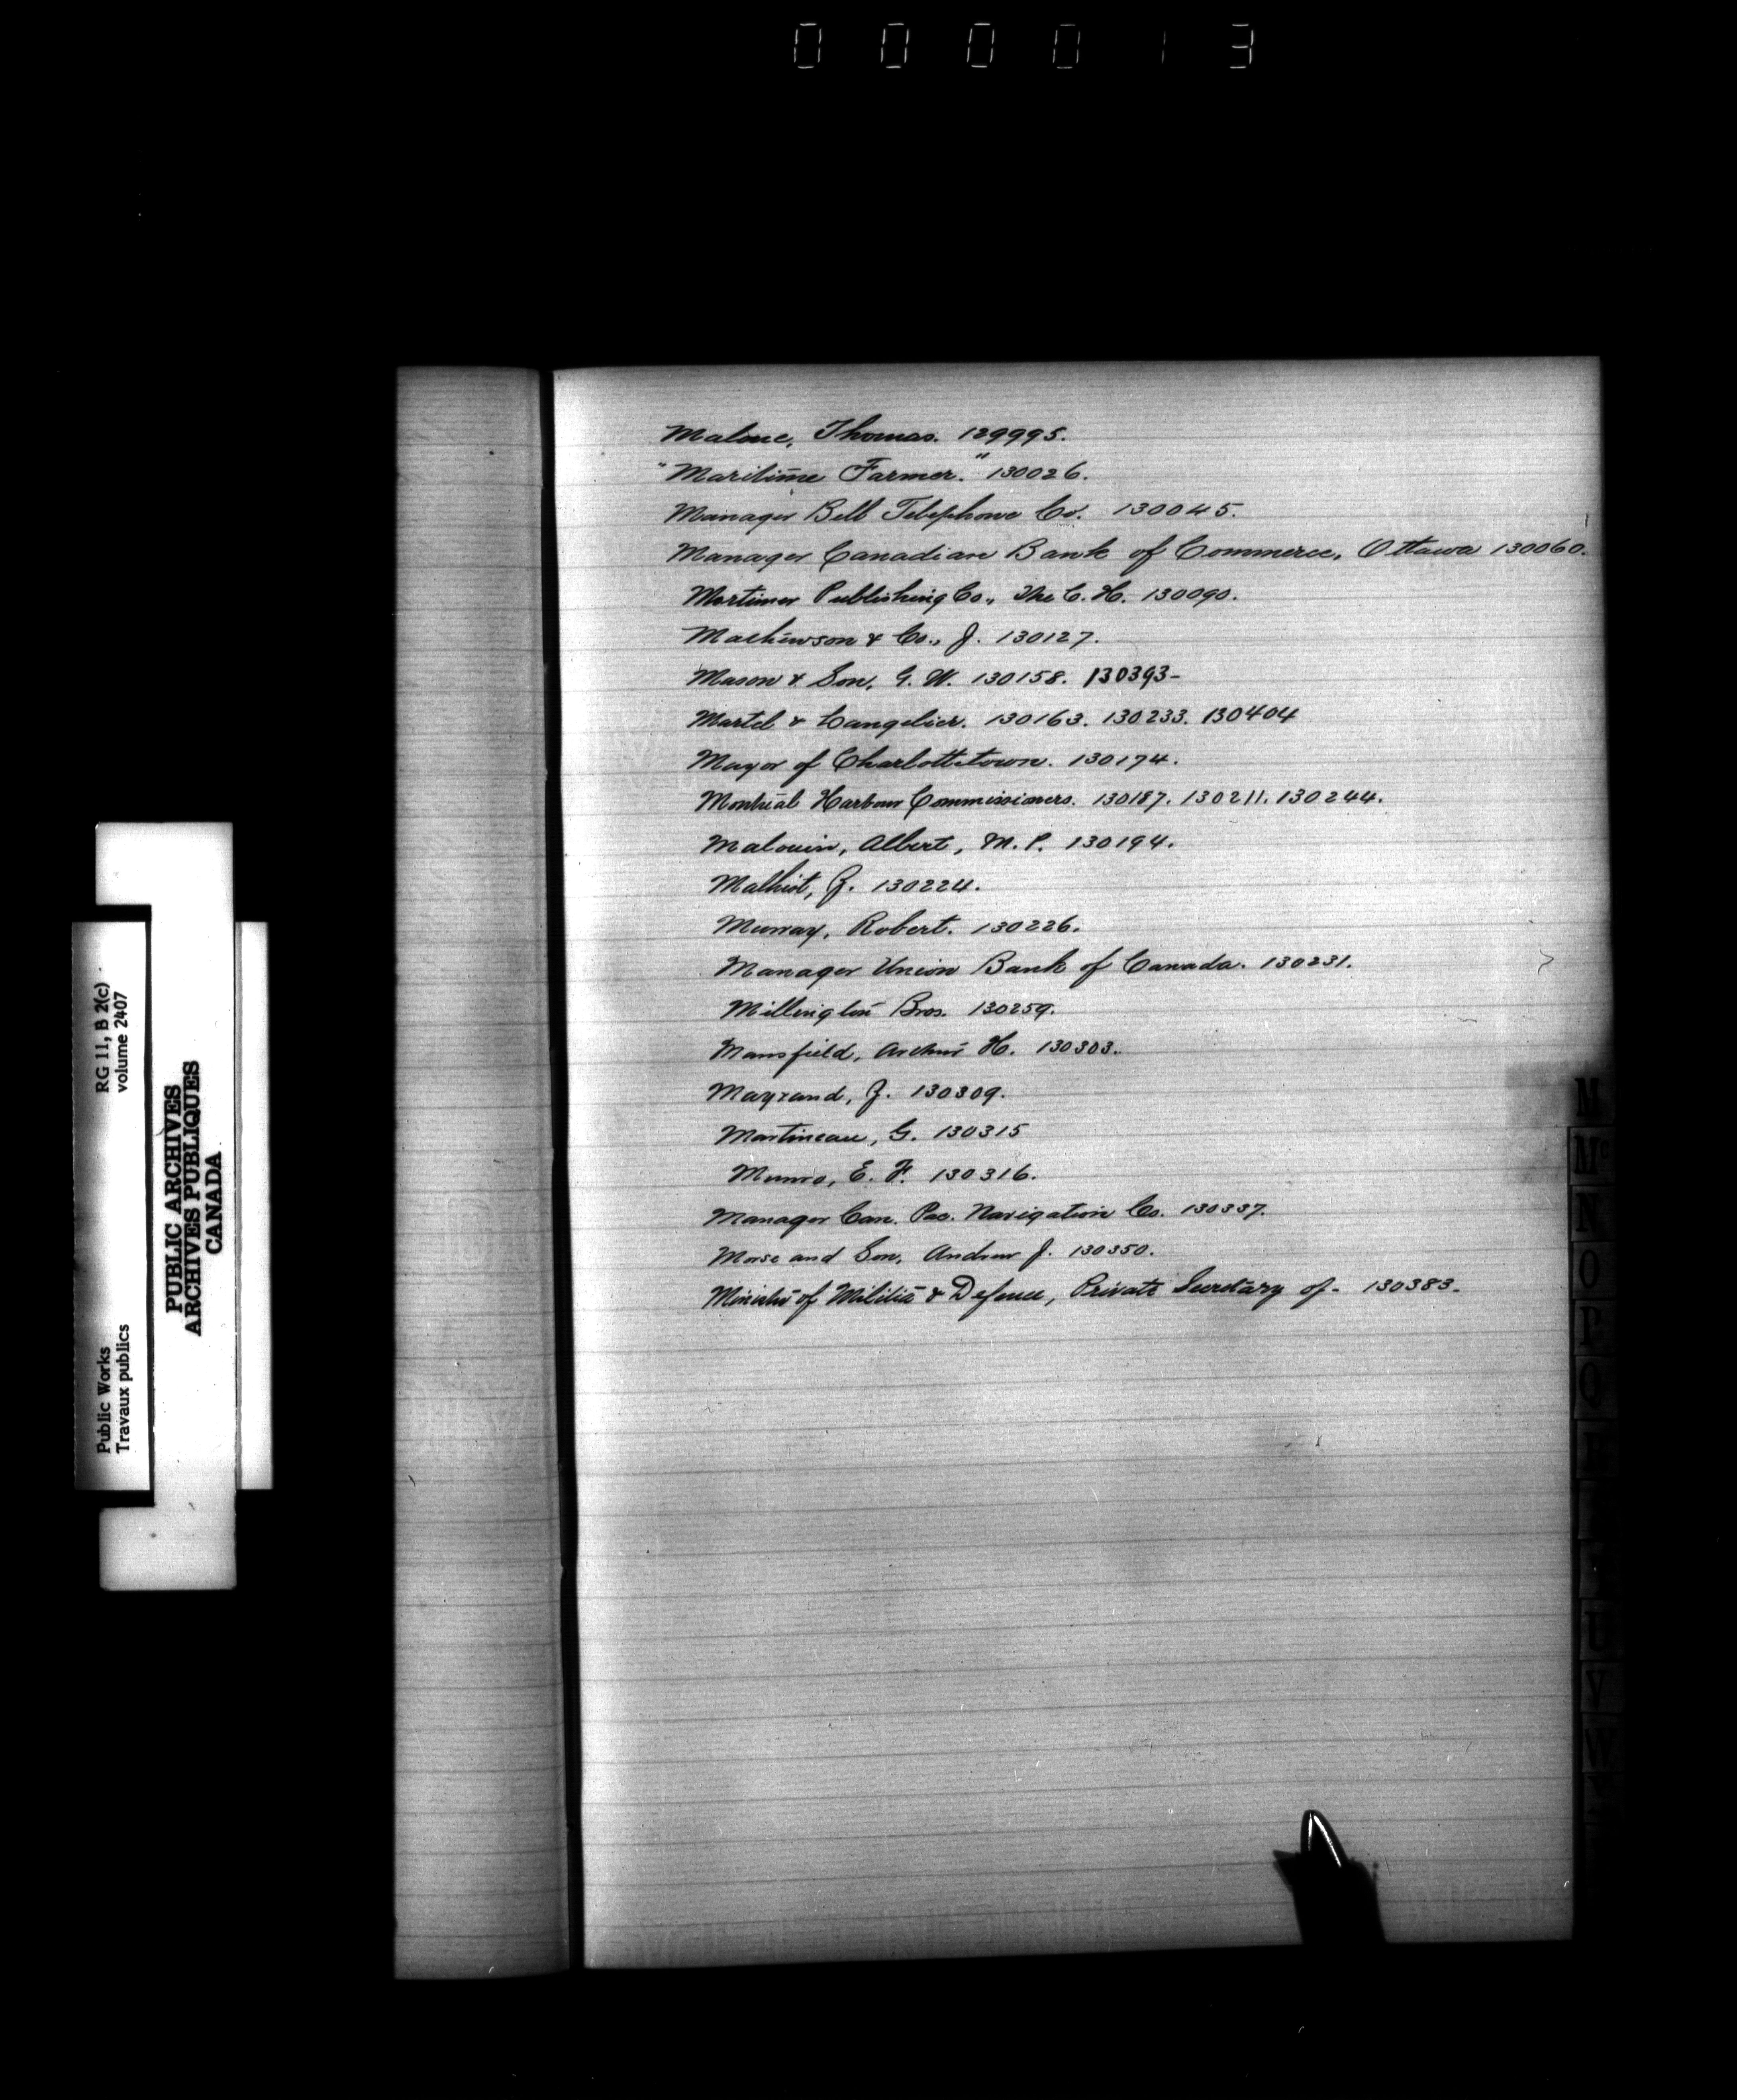 000013
Malone, Thomas. 129995.
"Maritime Farmer." 130026.
Manager Bell Telephone Co. 130045.
Manager Canadian Bank of Commerce, Ottawa 130060.
Mortimer Publishing Co., The C. H. 130090.
Mathewson & Co., J. 130127.
Mason & Son, G. W. 130158. 130393-
Martel & Langelier. 130163. 130233. 130404
Mayor of Charlottetown. 130174.
Montreal Harbour Commissioners. 130187. 130211. 130244.
Malouin, Albert, M.P. 130194.
Malhiot, Z. 130224.
Murray, Robert. 130226.
Manager Union Bank of Canada. 130231.
Millington Bros. 130259.
Mansfield, Arthur H. 130303.
Mayrand, Z. 130309.
Martineau, G. 130315
Munro, E. F. 130316.
Manager Can. Pac. Navigation Co. 130337.
Morse and Son, Andrew J. 130350.
Minister of Militia & Defence, Private Secretary of- 130383-
M
Mc
N
O
P
Q
U
V
W
Public Works RG 11, B 2(c)
Travaux publics volume 2407
PUBLIC ARCHIVES
ARCHIVES PUBLIQUES
CANADA